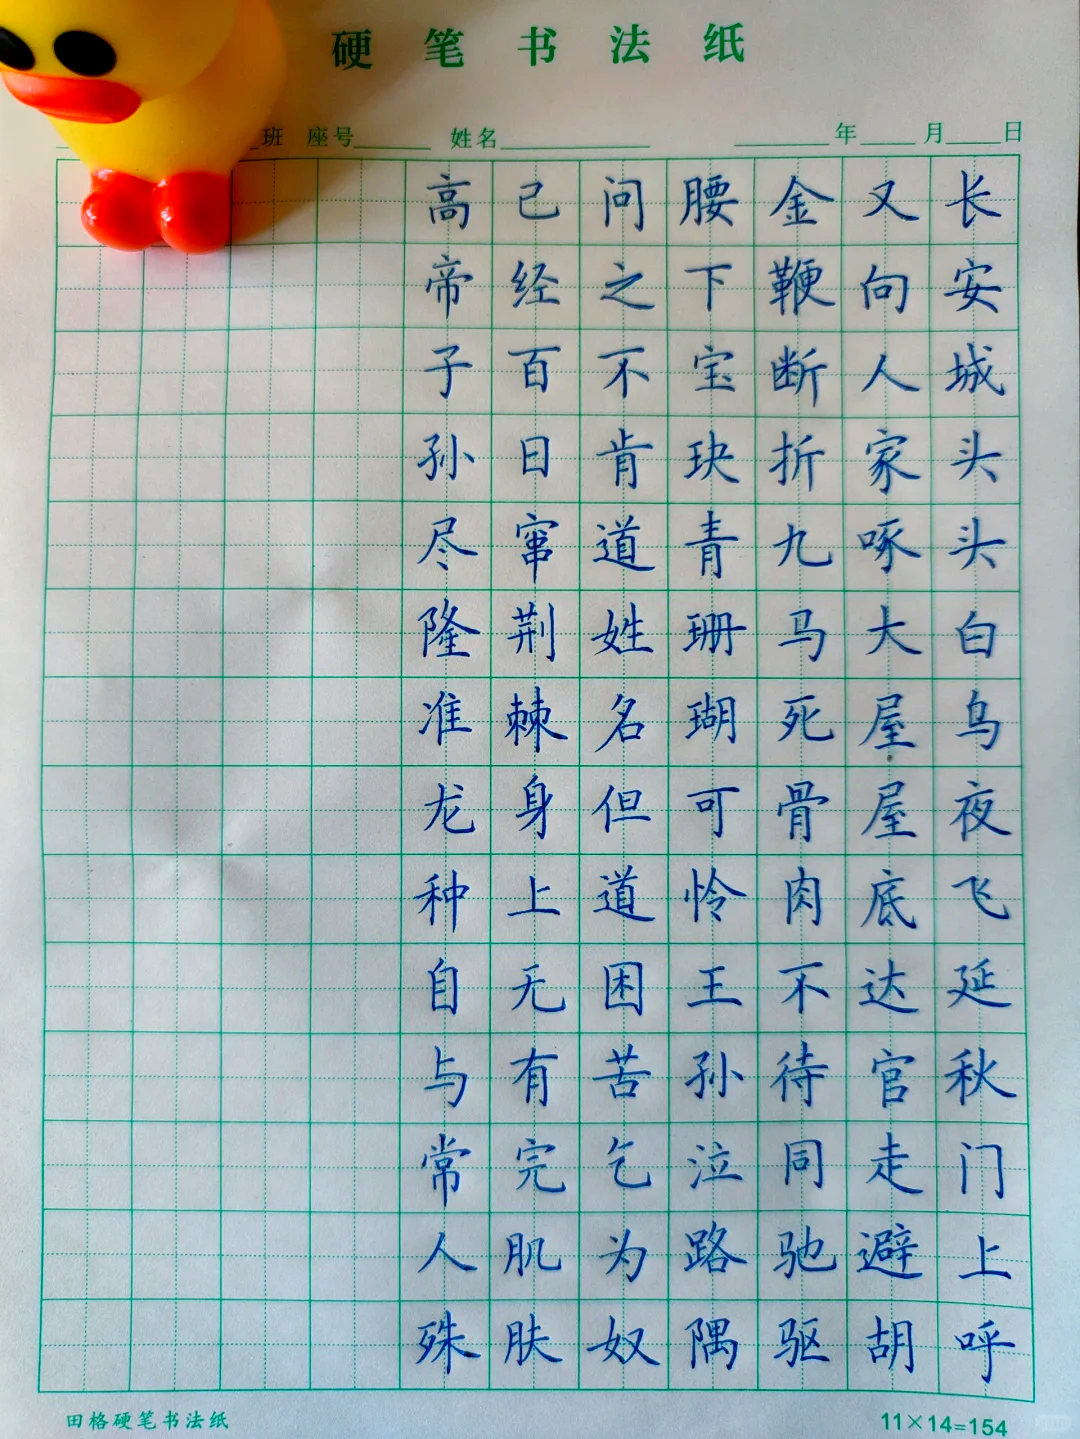 硬笔书法纸
班 座号 姓名 年 月 日
长安城头头白乌夜飞延秋门上呼
又向人家啄大屋屋底达官走避胡
金鞭断折九马死骨肉不待同驰驱
腰下宝玦青珊瑚可怜王孙泣路隅
问之不肯道姓名但道困苦乞为奴
已经百日窜荆棘身上无有完肌肤
高帝子孙尽隆准龙种自与常人殊
田格硬笔书法纸
11×14=154